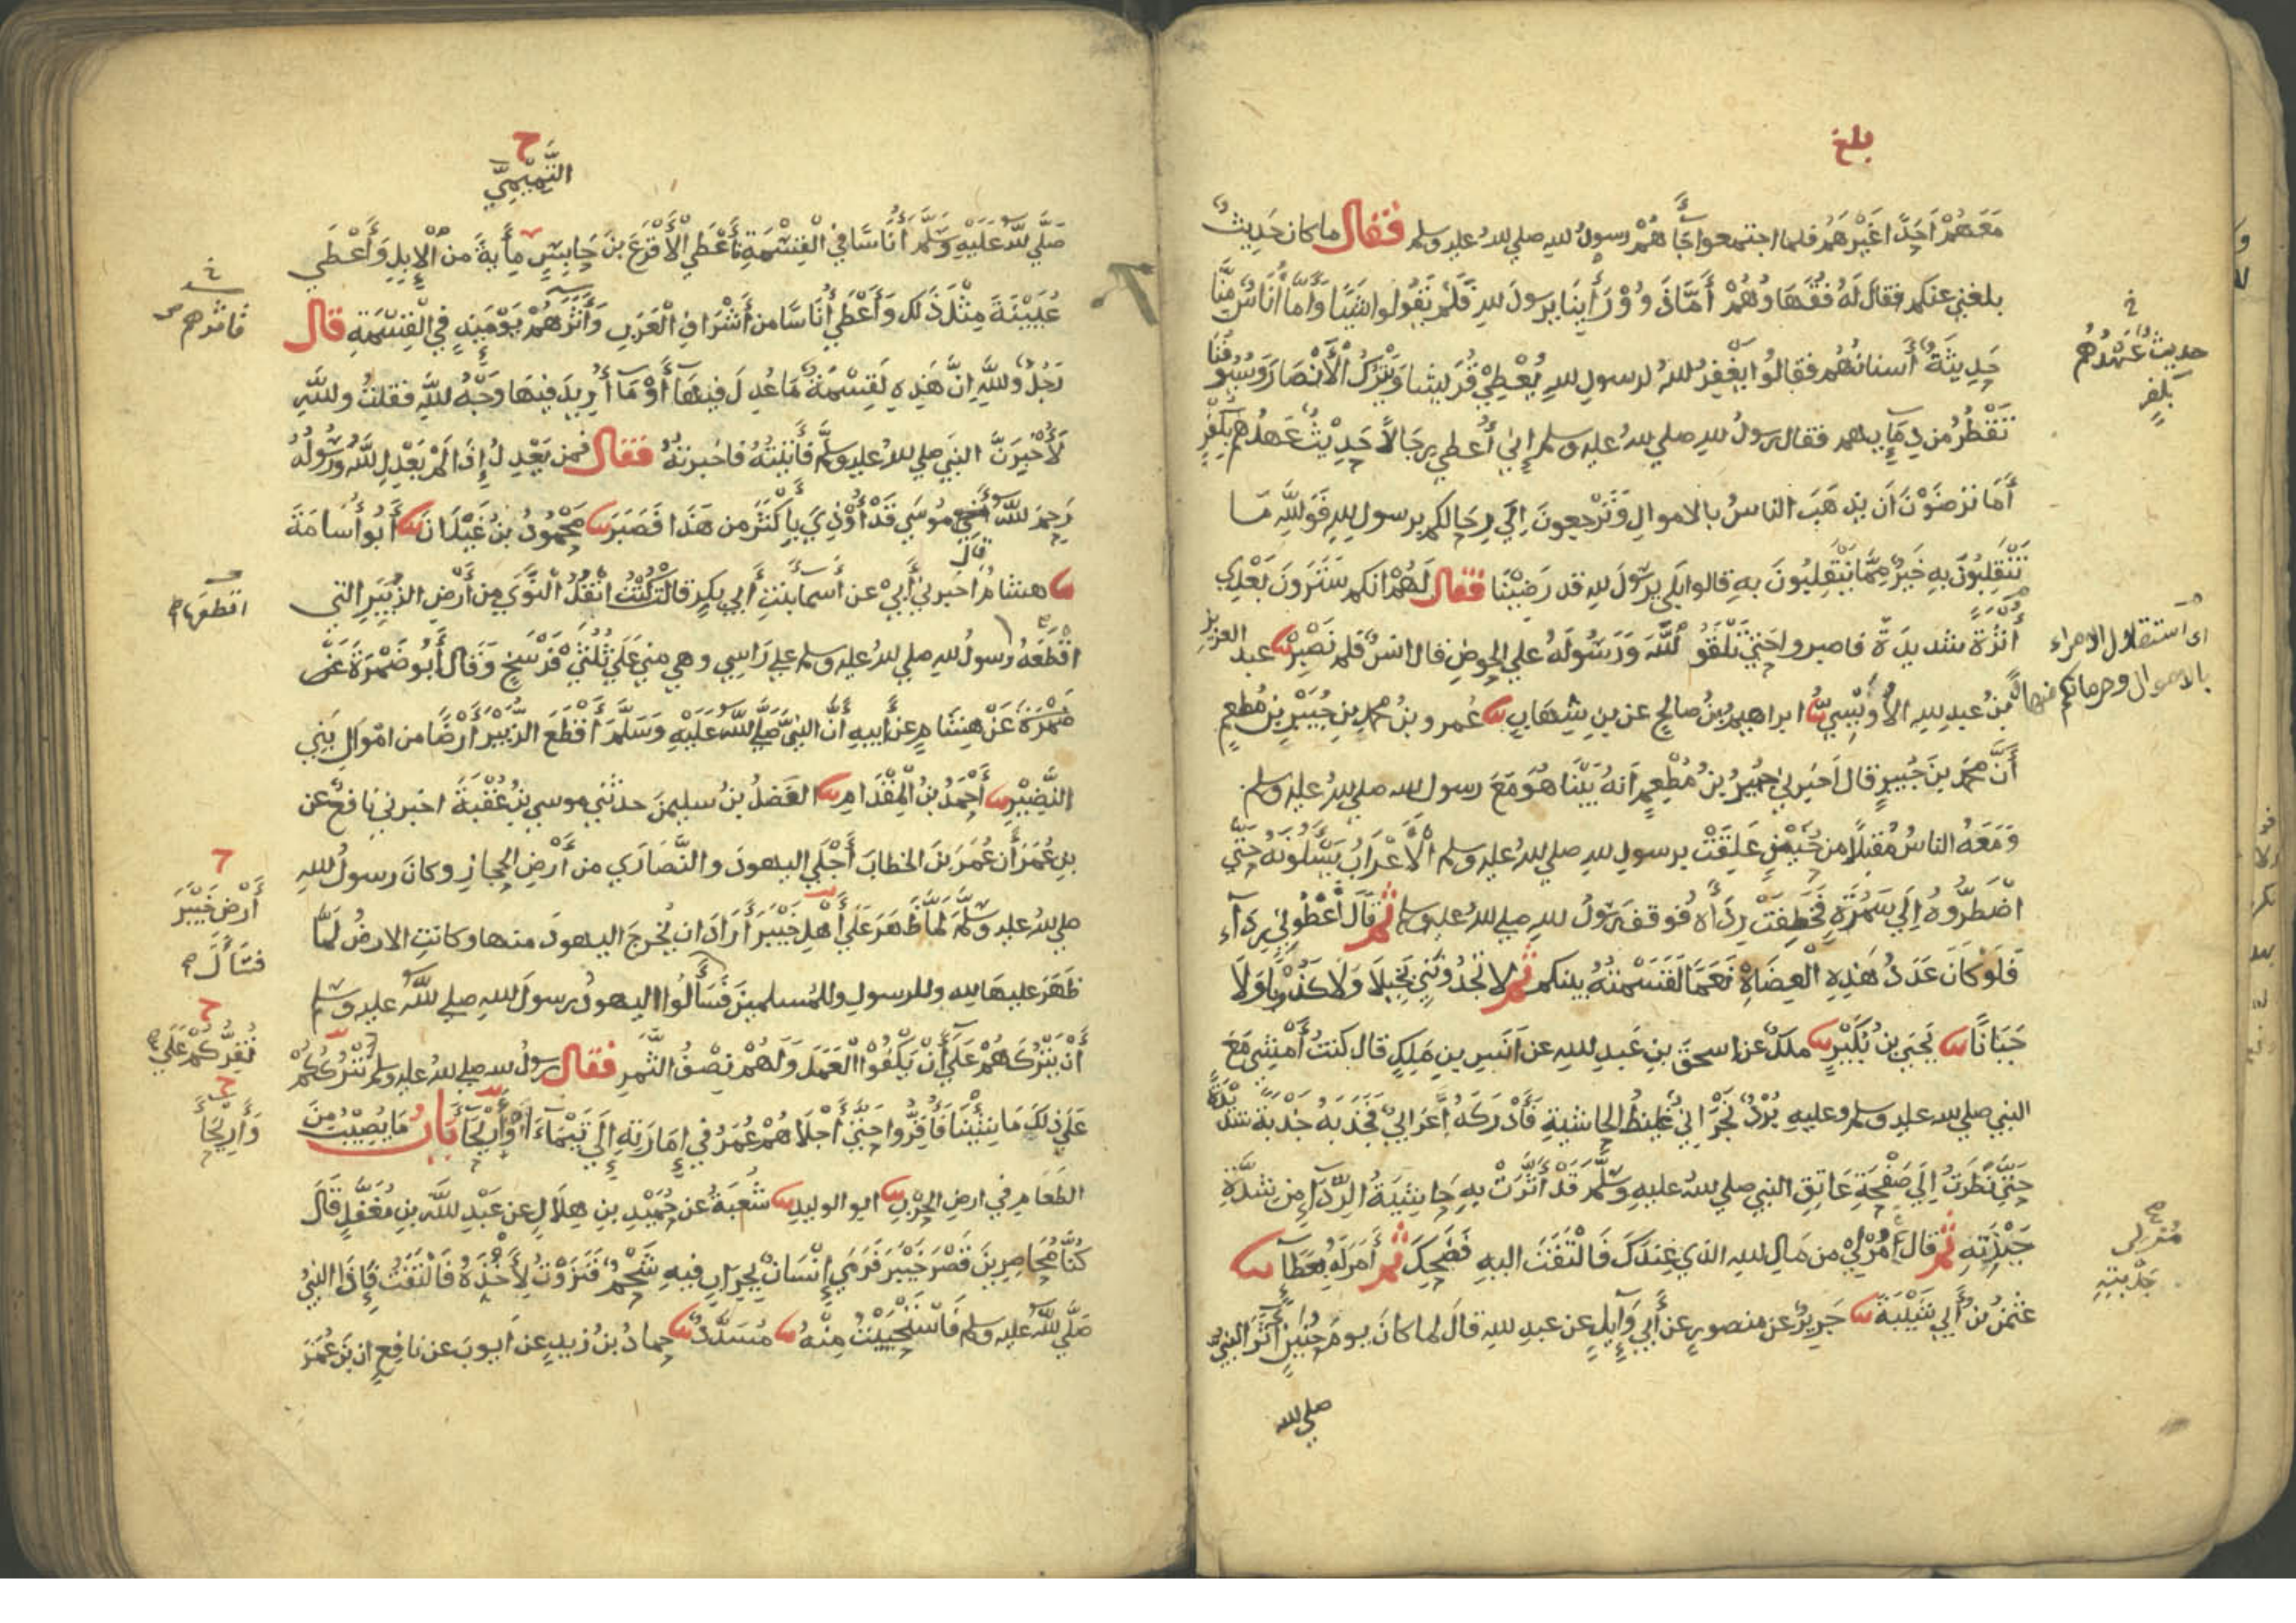 بلغ
مَعَهُمْ أَحَدًا غَيْرَهُمْ فلما اجتمعوا جَاءَهُمْ رسولُ الله صلى الله عليه وسلم فقال ما كان حَدِيثٌ
بلغني عنكم فقال لَهُ فُقَهَاؤُهُمْ أَمَّا ذَوُو رَأْيِنَا يرسولَ الله فَلَمْ يَقُولُوا شَيْئًا وَأَمَّا أُنَاسٌ مِنَّا
حَدِيثَةٌ أسنانُهُم فقالُوا يَغْفِرُ اللهُ لرسولِ الله يُعْطِي قُرَيشا وَيَتْرُكُ الْأَنْصَارَ وَسُيُوفُنَا
تَقْطُرُ من دِمَايِهم فقال رسولُ الله صلى الله عليه وسلم إِنِّي أُعطي رِجَالًا حَدِيْثٌ عَهْدُهُمْ بِكُفْرٍ
أَمَا تَرْضَوْنَ أَن يَذْهَبَ الناسُ بالاموالِ وَتَرْجِعونَ إِلَى رِحَالِكم برسول الله فَوَاللَّهِ مَا
تَنْقَلِبُونَ بِهِ خَيْرٌ مِمَّا يَنْقَلِبُونَ بهِ قالوا بَلَى يرسُولَ لله قد رَضِيْنَا فقال لَهُمْ انكم سَتَرَونَ بَعْدِي
أُثْرَةً شديدَةً فاصبروا حَتَّى تَلْقَوُ اللَّهَ وَرَسُولَهُ على الحوضِ قال انسٌ فَلم نَصْبِرْ ثنا عبد العزيز
بْنُ عبدِ الله الأُوَيْسِيُّ ثنا ابراهيم بنُ صالحٍ عن بنِ شِهَابٍ ثنا عُمر وبنُ محمدِ بنِ جُبَيْرِ بْنِ مُطعِمٍ
أَنَّ محمدَ بنَ جُبَيرٍ قال اخبرني جُبَيرُ بنُ مُطْعِمٍ أَنهُ بَيْنَا هُوَ مَعَ رسول الله صلى الله عليه وسلم
وَمَعَهُ الناسُ مُقبِلًا من حُنَيْنٍ عَلِقَتْ برسولِ الله صلى الله عليه وسلم الْأَعْرَابُ يَسْأَلُونَهُ حَتَّى
اضْطَرُّوهُ إِلَى سَمُرَةٍ فَخَطِفَتْ رِدَاءهُ فوقف رسولُ الله صلى الله عليه وسلم ثم قَالَ أَعْطُونِي رِدَآءِ
فَلَوْ كَانَ عَدَدُ هَذِهِ الْعِضَاهِ نَعَمًا لَقَسَمْتُهُ بينكم ثم لا تَجِدُونَنِي بَخِيلًا وَلَا كَذُوبًا وَلَا
جَبَانًا ثنا يَحْيَى بْنُ بُكَيْرٍ ثنا ملكٌ عن اسحقَ بنِ عَبدِ الله عن أَنَسِ بنِ مَلِكٍ قال كنتُ أَمْشِي مَعَ
النبي صلى الله عليه وسلم وعليهِ بُرْدٌ نَجْرَانِيٌّ غليظُ الحاشيةِ فَأَدْرَكَهُ أَعْرَابِيٌّ فَجَذَبَهُ جَذْبَةً شديدَةً
حَتَّى نَظَرْتُ إِلَى صَفْحَةِ عَاتِقِ النبي صلى الله عليه وسلم قَدْ أَثَّرَتْ بِهِ حَاشِيَةُ الرِّدَاءِ مِن شِدَّةِ
جَبْذَتِهِ ثم قال مُرْ لِي من مَالِ الله الذي عِنْدَكَ فَالْتَفَتَ اليهِ فَضَحِكَ ثم أَمَرَ لَهُ بِعَطَاءٍ ثنا
عثمنُ بْنُ أَبِي شَيْبَةَ ثنا جَرِيرٌ عن منصورٍ عن أَبِي وَآيِلٍ عن عبدِ الله قالَ لما كانَ يومَ حُنَيْنٍ آثَرَ النبيُّ
صلى الله
خ
حديثٌ عَهْدُهُمْ
بكفرٍ
اى استقلال الامراء
بالاموال وحرمانكم منها
مُرْ لى
جَذْبَتِهِ
ح
التَّمِيْمِيَّ
صَلَّى اللهُ عَلَيْهِ وَسَلَّمَ أُنَاسًا في الْقِسْمَةِ فأَعْطَى الْأَقْرَعَ بنَ حَابِسٍ مِأيةً من الْإِبِلِ وَأَعْطَى
عُيَيْنَةَ مِثْلَ ذَلك وَأَعْطَى أُنَاسًا من أَشْرَافِ الْعَرَبِ وَآثَرَهُمْ يَوْمَيِذٍ فِي الْقِسْمَةِ قال
رَجُلٌ واللَّهِ إِنَّ هَذِهِ لَقِسْمَةٌ مَا عُدِلَ فِيهَا أَوْ مَا أُرِيدَ فيها وَجْهُ اللَّهِ فقلتُ واللَّهِ
لَأُخْبِرَنَّ النبيَّ صلى الله عليه وسلم فَأَتَيْتُهُ فاخبرتُهُ فقال فمن يَعْدِلُ إِذَا لَمْ يَعْدِلِ اللَّهُ وَرَسُولُهُ
رَحِمَ اللَّهُ أَخِي مُوسَى قَدْ أُوْذِيَ بِأَكْثَرَ من هَذَا فَصَبَرَ ثنا مَحْمُودُ بنُ غَيْلَانَ ثنا أَبُو أُسَامَةَ قال
ثنا هشامٌ اخبرني أَبِيْ عن أَسمآءَ بنتِ أَبي بكرٍ قالت كُنْتُ انْقُلُ النَّوَى مِن أَرْضِ الزُّبَيْرِ التي
اقْطَعَهُ رسولُ الله صلى الله عليه وسلم على رَاسِي وهي مني عَلَى ثُلُثَيْ فَرْسَخٍ وَقال أَبُو ضَمْرَةَ عَنْ
ضَمْرَةَ عَنْ هِشَامٍ عن أَبيهِ أَنَّ النبيَّ صَلَّى اللهُ عَلَيْهِ وَسَلَّمَ أَقْطَعَ الزُّبَيْرَ أَرْضًا من امْوَالِ بَنِي
النَّضِيْرِ ثنا أَحْمَدُ بْنُ الْمِقْدَامِ ثنا الفَضلُ بنُ سليمنَ حدثني موسى بنُ عُقْبَةَ اخبرني نَافعٌ عن
بنِ عُمَرَ أن عُمَرَ بنَ الخطاب أَجْلَى اليهودَ والنَّصَارَى من أَرْضِ الحِجازِ وكانَ رسولُ اللهِ
صلى الله عليه وسلم لَمَّا ظَهَرَ عَلَى أَهْلِ خَيْبَرَ أَرَادَ ان يُخْرِجَ اليهودَ منها وكانتِ الارضُ لَمَّا
ظَهَرَ عليهَا للهِ وللرسولِ وللمُسلمينَ فَسَأَلُوا اليهودُ رسولَ الله صلى الله عليه وسلم
أَنْ يَتْرُكَهُمْ عَلَى أَنْ يَكْفُوا الْعَمَلَ وَلَهُمْ نِصْفُ الثَّمَرِ فقال رسولُ الله صلى الله عليه وسلم نَتْرُكُكُمْ
عَلَى ذَلِكَ مَا شِئْنَا فَأُقِرُّوا حَتَّى أَجْلَاهُمْ عُمَرُ فِي إِمَارَتِهِ إِلَى تَيْمَاءَ أَوْ أَرِيْحَا بَابُ مَا يُصِيْبُ مِنَ
الطَعَامِ في ارضِ الحَرْبِ ثنا ابو الوليدِ ثنا شُعبَةُ عن حُمَيْدِ بنِ هِلَالٍ عن عَبْدِ اللَّهِ بنِ مُغَفَّلٍ قَالَ
كُنَّا مُحَاصِرِينَ قَصْرَ خَيْبَرَ فَرَمَى إِنْسَانٌ بِجِرَابٍ فيهِ شَحْمٌ فَنَزَوْتُ لِأَخْذِهِ فَالْتَفَتُّ فَإِذَا النبيُّ
صَلَّى اللهُ عليه وسلم فَاسْتَحْيَيْتُ مِنْهُ ثنا مُسَدَّدٌ ثنا حمادُ بنُ زيدٍ عن أيوبَ عن نافعٍ ان بنَ عُمَرَ
خ
فآثرهم
اقطعها
أَرْضِ خَيْبَرَ
فسَأَلَ
نُقِرُّكُمْ عَلَى
وَأَرِيْحَاءَ